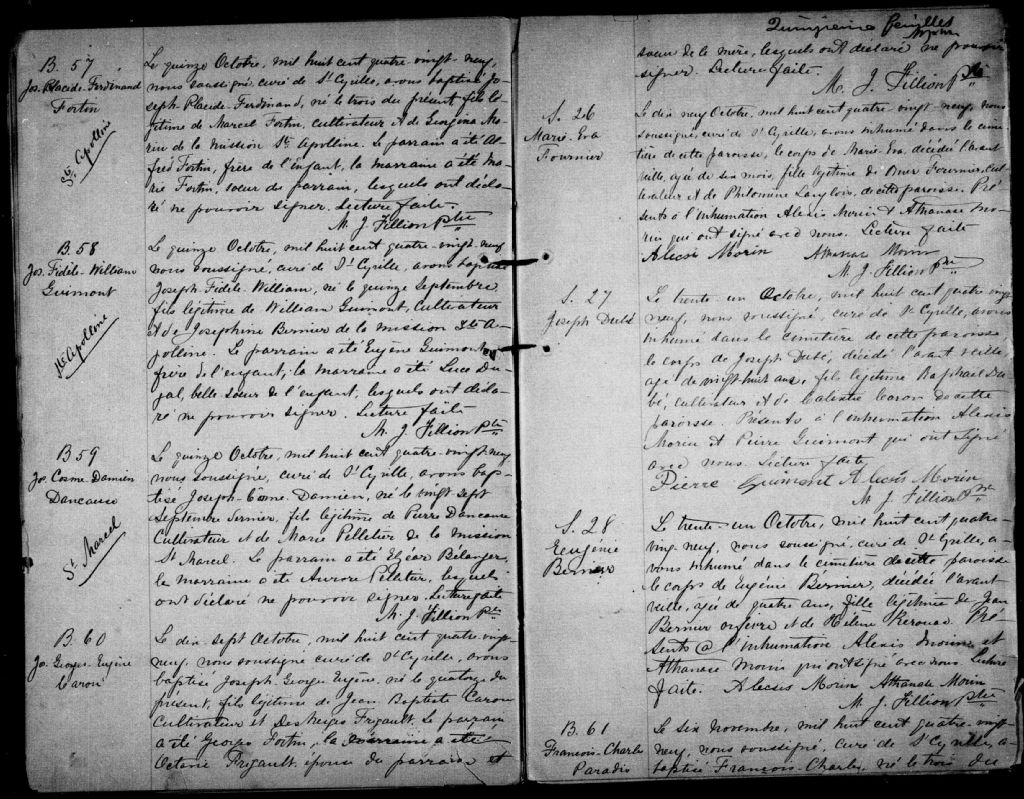 B. 57
Jos. Placide Ferdinand
Fortin
Ste Apolline
Le quinze Octobre, mil huit cent quatre vingt-neuf,
nous soussigné, curé de St Cyrille, avons baptisé Jo-
seph-Placide-Ferdinand, né le trois du présent, fils lé-
gitime de Marcel Fortin, cultivateur et de Georgina Mo-
rin de la mission Ste Apolline. Le parrain a été Al-
fred Fortin, frère de l'enfant, la marraine a été Ma-
rie Fortin, sœur du parrain, lesquels ont décla-
ré ne pouvoir signer. Lecture faite.
M. J. Fillion Ptre
B. 58
Jos. Fidèle-William
Guimont
Ste Apolline
Le quinze Octobre, mil huit cent quatre-vingt-neuf
nous soussigné, curé de St Cyrille, avons baptisé
Joseph-Fidèle-William, né le quinze Septembre
fils légitime de William Guimont, cultivateur
et de Josephine Bernier de la mission Ste A-
polline. Le parrain a été Eugène Guimont
frère de l'enfant; la marraine a été Luce Du-
gal, belle sœur de l'enfant, lesquels ont décla-
ré ne pouvoir signer. Lecture faite
M. J. Fillion Ptre
B. 59
Jos. Cosme Damien
Dancause
St. Marcel
Le quinze Octobre, mil huit cent quatre-vingt-neuf
nous soussigné, curé de St Cyrille, avons bap-
tisé Joseph-Côme Damien, né le vingt sept
Septembre dernier, fils légitime de Pierre Dancause
Cultivateur et de Marie Pelletier de la mission
St Marcel. Le parrain a été Elzéar Bélanger,
la marraine a été Aurore Pelletier, lesquels
ont déclaré ne pouvoir signer. Lecture faite
M. J. Fillion Ptre
B. 60
Jos. Georges-Eugène
Caron
Le dix-sept Octobre, mil huit cent quatre-vingt-
neuf, nous soussigné curé de St Cyrille, avons
baptisé Joseph-Georges-Eugène, né le quatorze du
présent, fils légitime de Jean Baptiste Caron
Cultivateur et Des Neiges Frigault. Le parrain
a été Georges Fortin, la marraine a été
Octavie Frigault, épouse du parrain et
Quinzième feuillet
sœur de la mère, lesquels ont déclaré ne pouvoir
signer. Lecture faite.
M. J. Fillion Ptre
S. 26
Marie-Eva
Fournier
Le dix neuf Octobre, mil huit cent quatre-vingt-neuf, nous
soussigné, curé de St Cyrille, avons inhumé dans le cime-
tière de cette paroisse, le corps de Marie-Eva, décédée l'avant
veille, agée de six mois, fille légitime de Omer Fournier, cul-
tivateur et de Philomène Langlois, de cette paroisse. Pré-
sents à l'inhumation Alexis Morin & Athanase Mo-
rin qui ont signé avec nous. Lecture faite
Alecsi Morin Athanase Morin
M. J. Fillion Ptre
S. 27
Joseph Dubé
Le trente-un Octobre, mil huit cent quatre-vingt
neuf, nous soussigné, curé de St Cyrille, avons
inhumé dans le cimetière de cette paroisse
le corps de Joseph Dubé, décédé l'avant veille,
agé de vingt-huit ans, fils légitime Raphael Du-
bé, cultivateur et de Calestie Caron de cette
paroisse. Présents à l'inhumation Alexis
Morin et Pierre Guimont qui ont signé
avec nous. Lecture faite
Pierre Guimont Alecsis Morin
M. J. Fillion Ptre
S. 28
Eugénie
Bernier
Le trente-un Octobre, mil huit cent quatre-
vingt-neuf, nous soussigné, curé de St Cyrille, a-
vons inhumé dans le cimetière de cette paroisse
le corps de Eugénie Bernier, décédée l'avant
veille, agée de quatre ans, fille légitime de Jean
Bernier orfèvre et de Hélène Kerouac. Pré-
sents @ l'inhumation Alexis Morin et
Athanase Morin qui ont signé avec nous Lecture
faite. Alecsis Morin Athanase Morin
M. J. Fillion Ptre
B. 61
François-Charles
Paradis
Le six Novembre, mil huit cent quatre-vingt-
neuf, nous soussigné, curé de St Cyrille, a-
baptisé François-Charles, né le trois du